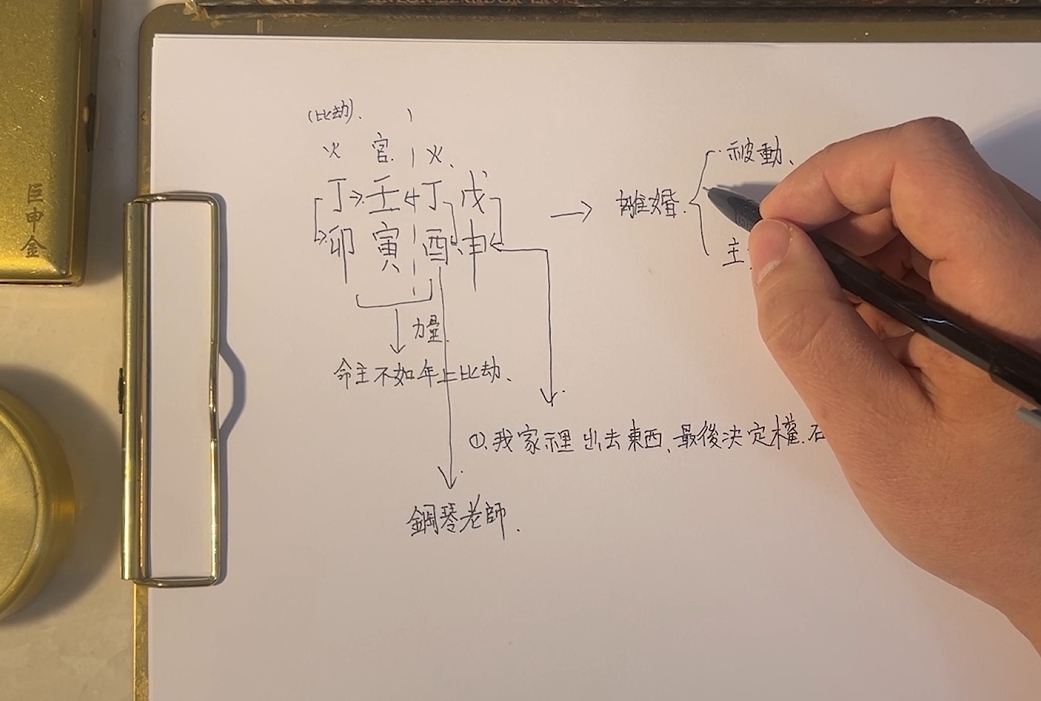 (比劫).
火 官 火.
丁 壬 丁 戊
卯 寅 酉 申
→ 離婚. 被動、
主
力量
命主不如年上比劫.
①.我家裡出去東西、最後決定權.
鋼琴老師.
巨申金